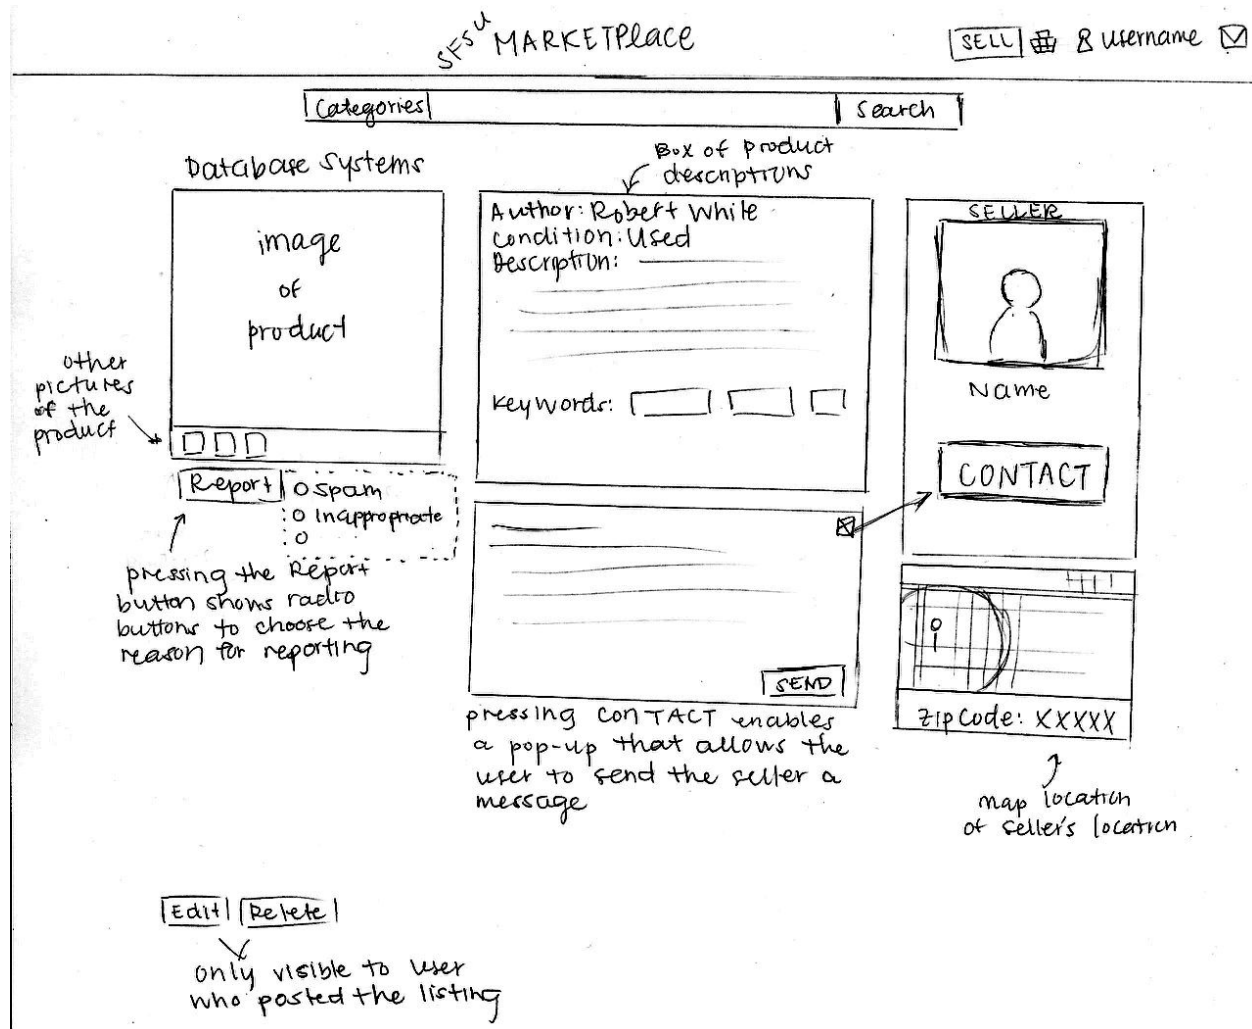 SFSU MARKETPlace
SELL username
Categories
Search
Database Systems
image
of
product
other
pictures
of the
product
Report
Spam
Inappropriate
pressing the Report
button shows radio
buttons to choose the
reason for reporting
Box of product
descriptions
Author: Robert White
Condition: Used
Description:
Keywords:
SEND
pressing CONTACT enables
a pop-up that allows the
user to send the seller a
message
SELLER
Name
CONTACT
Zip Code: XXXXX
map location
of seller's location
Edit Delete
only visible to user
who posted the listing